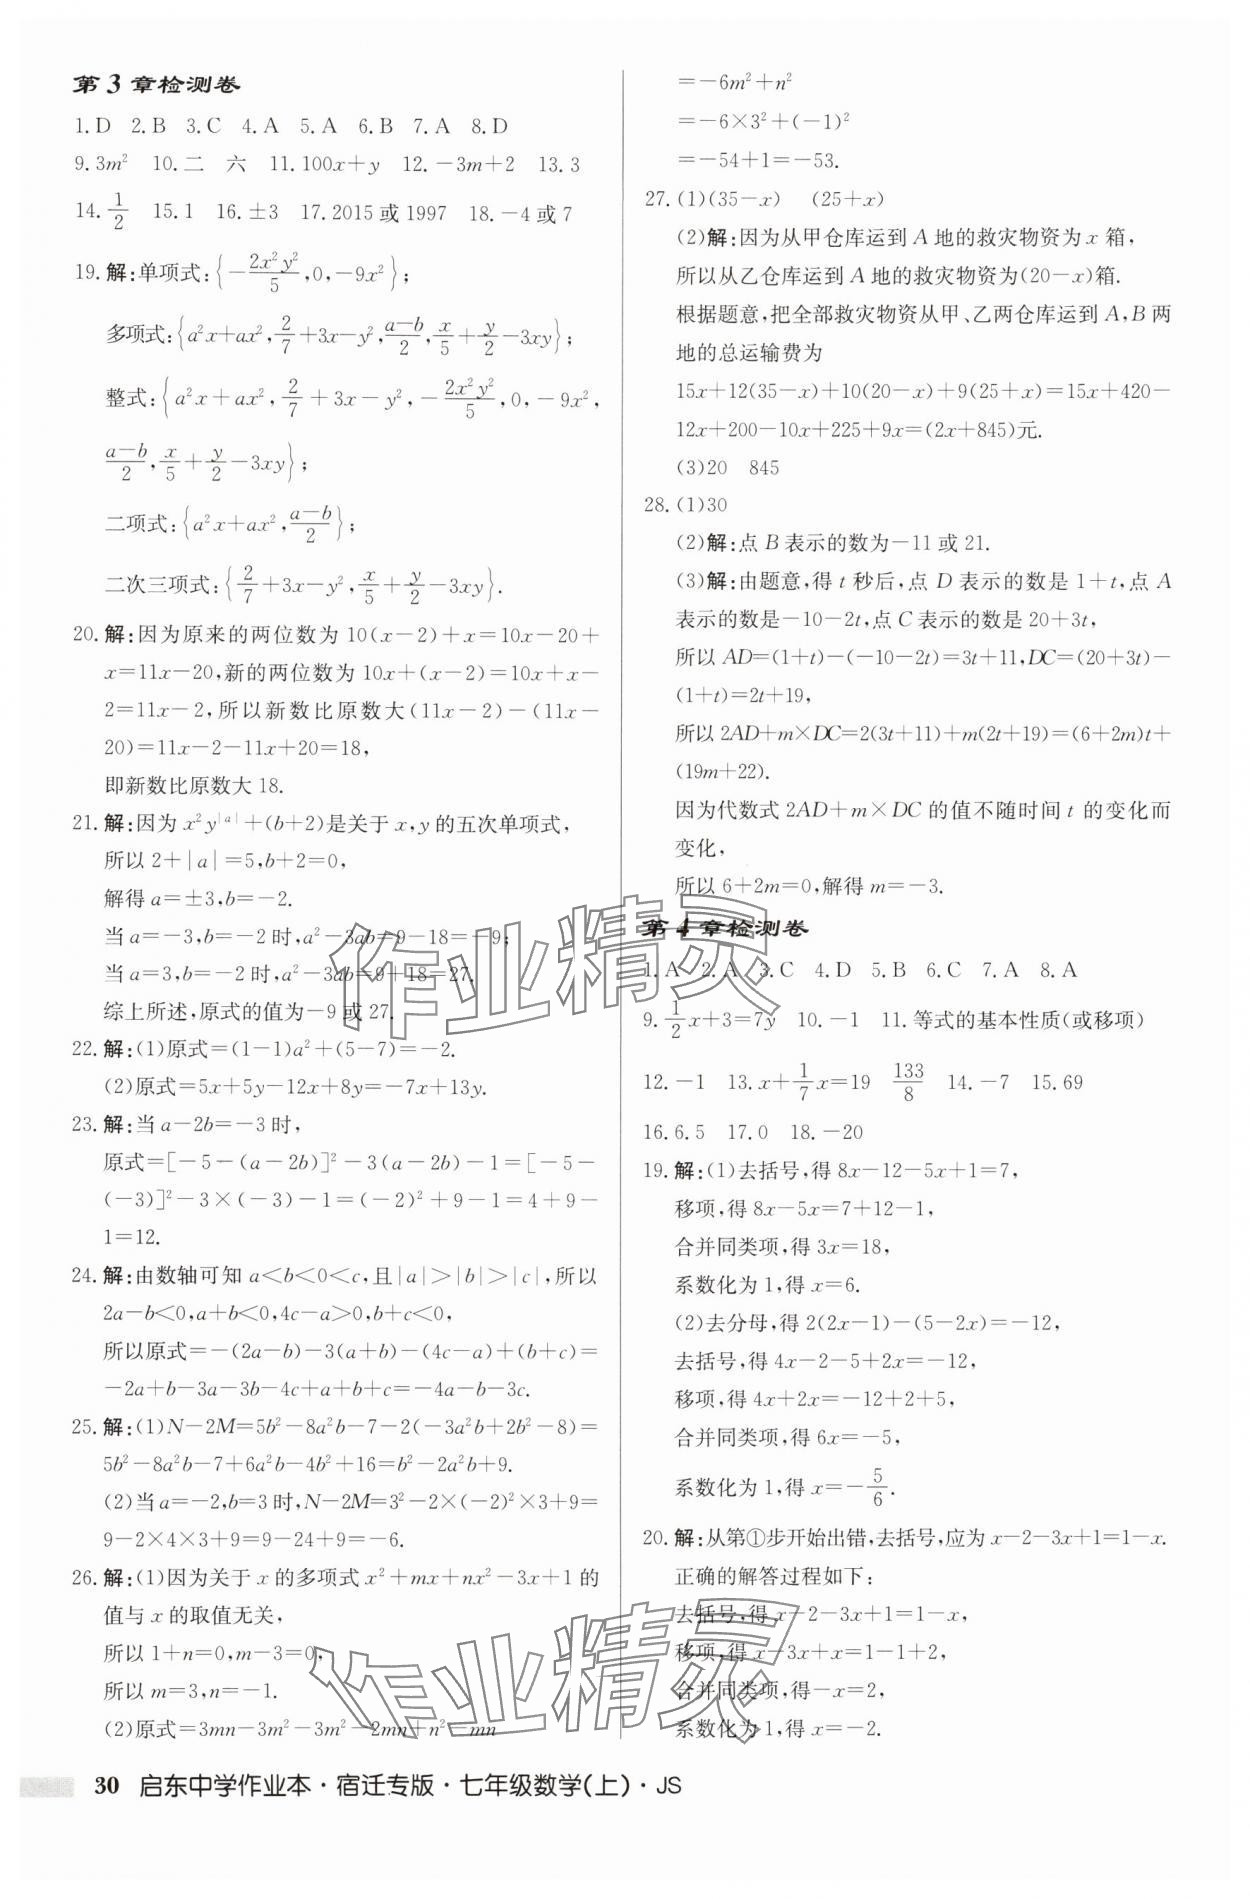 第3章检测卷
1.D 2.B 3.C 4.A 5.A 6.B 7.A 8.D
9.3m² 10.二 六 11.100x+y 12.-3m+2 13.3
14.1/2 15.1 16.±3 17.2015或1997 18.-4或7
19.解:单项式:{-2x²y²/5,0,-9x²};
多项式:{a²x+ax²,2/7+3x-y²,(a-b)/2,x/5+y/2-3xy};
整式:{a²x+ax²,2/7+3x-y²,-2x²y²/5,0,-9x²,
(a-b)/2,x/5+y/2-3xy};
二项式:{a²x+ax²,(a-b)/2};
二次三项式:{2/7+3x-y²,x/5+y/2-3xy}.
20.解:因为原来的两位数为10(x-2)+x=10x-20+
x=11x-20,新的两位数为10x+(x-2)=10x+x-
2=11x-2,所以新数比原数大(11x-2)-(11x-
20)=11x-2-11x+20=18,
即新数比原数大18.
21.解:因为x²y^|a|+(b+2)是关于x,y的五次单项式,
所以2+|a|=5,b+2=0,
解得a=±3,b=-2.
当a=-3,b=-2时,a²-3ab=9-18=-9;
当a=3,b=-2时,a²-3ab=9+18=27.
综上所述,原式的值为-9或27.
22.解:(1)原式=(1-1)a²+(5-7)=-2.
(2)原式=5x+5y-12x+8y=-7x+13y.
23.解:当a-2b=-3时,
原式=[-5-(a-2b)]²-3(a-2b)-1=[-5-
(-3)]²-3×(-3)-1=(-2)²+9-1=4+9-
1=12.
24.解:由数轴可知a<b<0<c,且|a|>|b|>|c|,所以
2a-b<0,a+b<0,4c-a>0,b+c<0,
所以原式=-(2a-b)-3(a+b)-(4c-a)+(b+c)=
-2a+b-3a-3b-4c+a+b+c=-4a-b-3c.
25.解:(1)N-2M=5b²-8a²b-7-2(-3a²b+2b²-8)=
5b²-8a²b-7+6a²b-4b²+16=b²-2a²b+9.
(2)当a=-2,b=3时,N-2M=3²-2×(-2)²×3+9=
9-2×4×3+9=9-24+9=-6.
26.解:(1)因为关于x的多项式x²+mx+nx²-3x+1的
值与x的取值无关,
所以1+n=0,m-3=0,
所以m=3,n=-1.
(2)原式=3mn-3m²-3m²-2mn+n²-mn
=-6m²+n²
=-6×3²+(-1)²
=-54+1=-53.
27.(1)(35-x) (25+x)
(2)解:因为从甲仓库运到A地的救灾物资为x箱,
所以从乙仓库运到A地的救灾物资为(20-x)箱.
根据题意,把全部救灾物资从甲、乙两仓库运到A,B两
地的总运输费为
15x+12(35-x)+10(20-x)+9(25+x)=15x+420-
12x+200-10x+225+9x=(2x+845)元.
(3)20 845
28.(1)30
(2)解:点B表示的数为-11或21.
(3)解:由题意,得t秒后,点D表示的数是1+t,点A
表示的数是-10-2t,点C表示的数是20+3t,
所以AD=(1+t)-(-10-2t)=3t+11,DC=(20+3t)-
(1+t)=2t+19,
所以2AD+m×DC=2(3t+11)+m(2t+19)=(6+2m)t+
(19m+22).
因为代数式2AD+m×DC的值不随时间t的变化而
变化,
所以6+2m=0,解得m=-3.
第4章检测卷
1.A 2.A 3.C 4.D 5.B 6.C 7.A 8.A
9.1/2x+3=7y 10.-1 11.等式的基本性质(或移项)
12.-1 13.x+1/7x=19 133/8 14.-7 15.69
16.6.5 17.0 18.-20
19.解:(1)去括号,得8x-12-5x+1=7,
移项,得8x-5x=7+12-1,
合并同类项,得3x=18,
系数化为1,得x=6.
(2)去分母,得2(2x-1)-(5-2x)=-12,
去括号,得4x-2-5+2x=-12,
移项,得4x+2x=-12+2+5,
合并同类项,得6x=-5,
系数化为1,得x=-5/6.
20.解:从第①步开始出错,去括号,应为x-2-3x+1=1-x.
正确的解答过程如下:
去括号,得x-2-3x+1=1-x,
移项,得x-3x+x=1-1+2,
合并同类项,得-x=2,
系数化为1,得x=-2.
作业精灵
作业精灵
30 启东中学作业本·宿迁专版·七年级数学(上)·JS